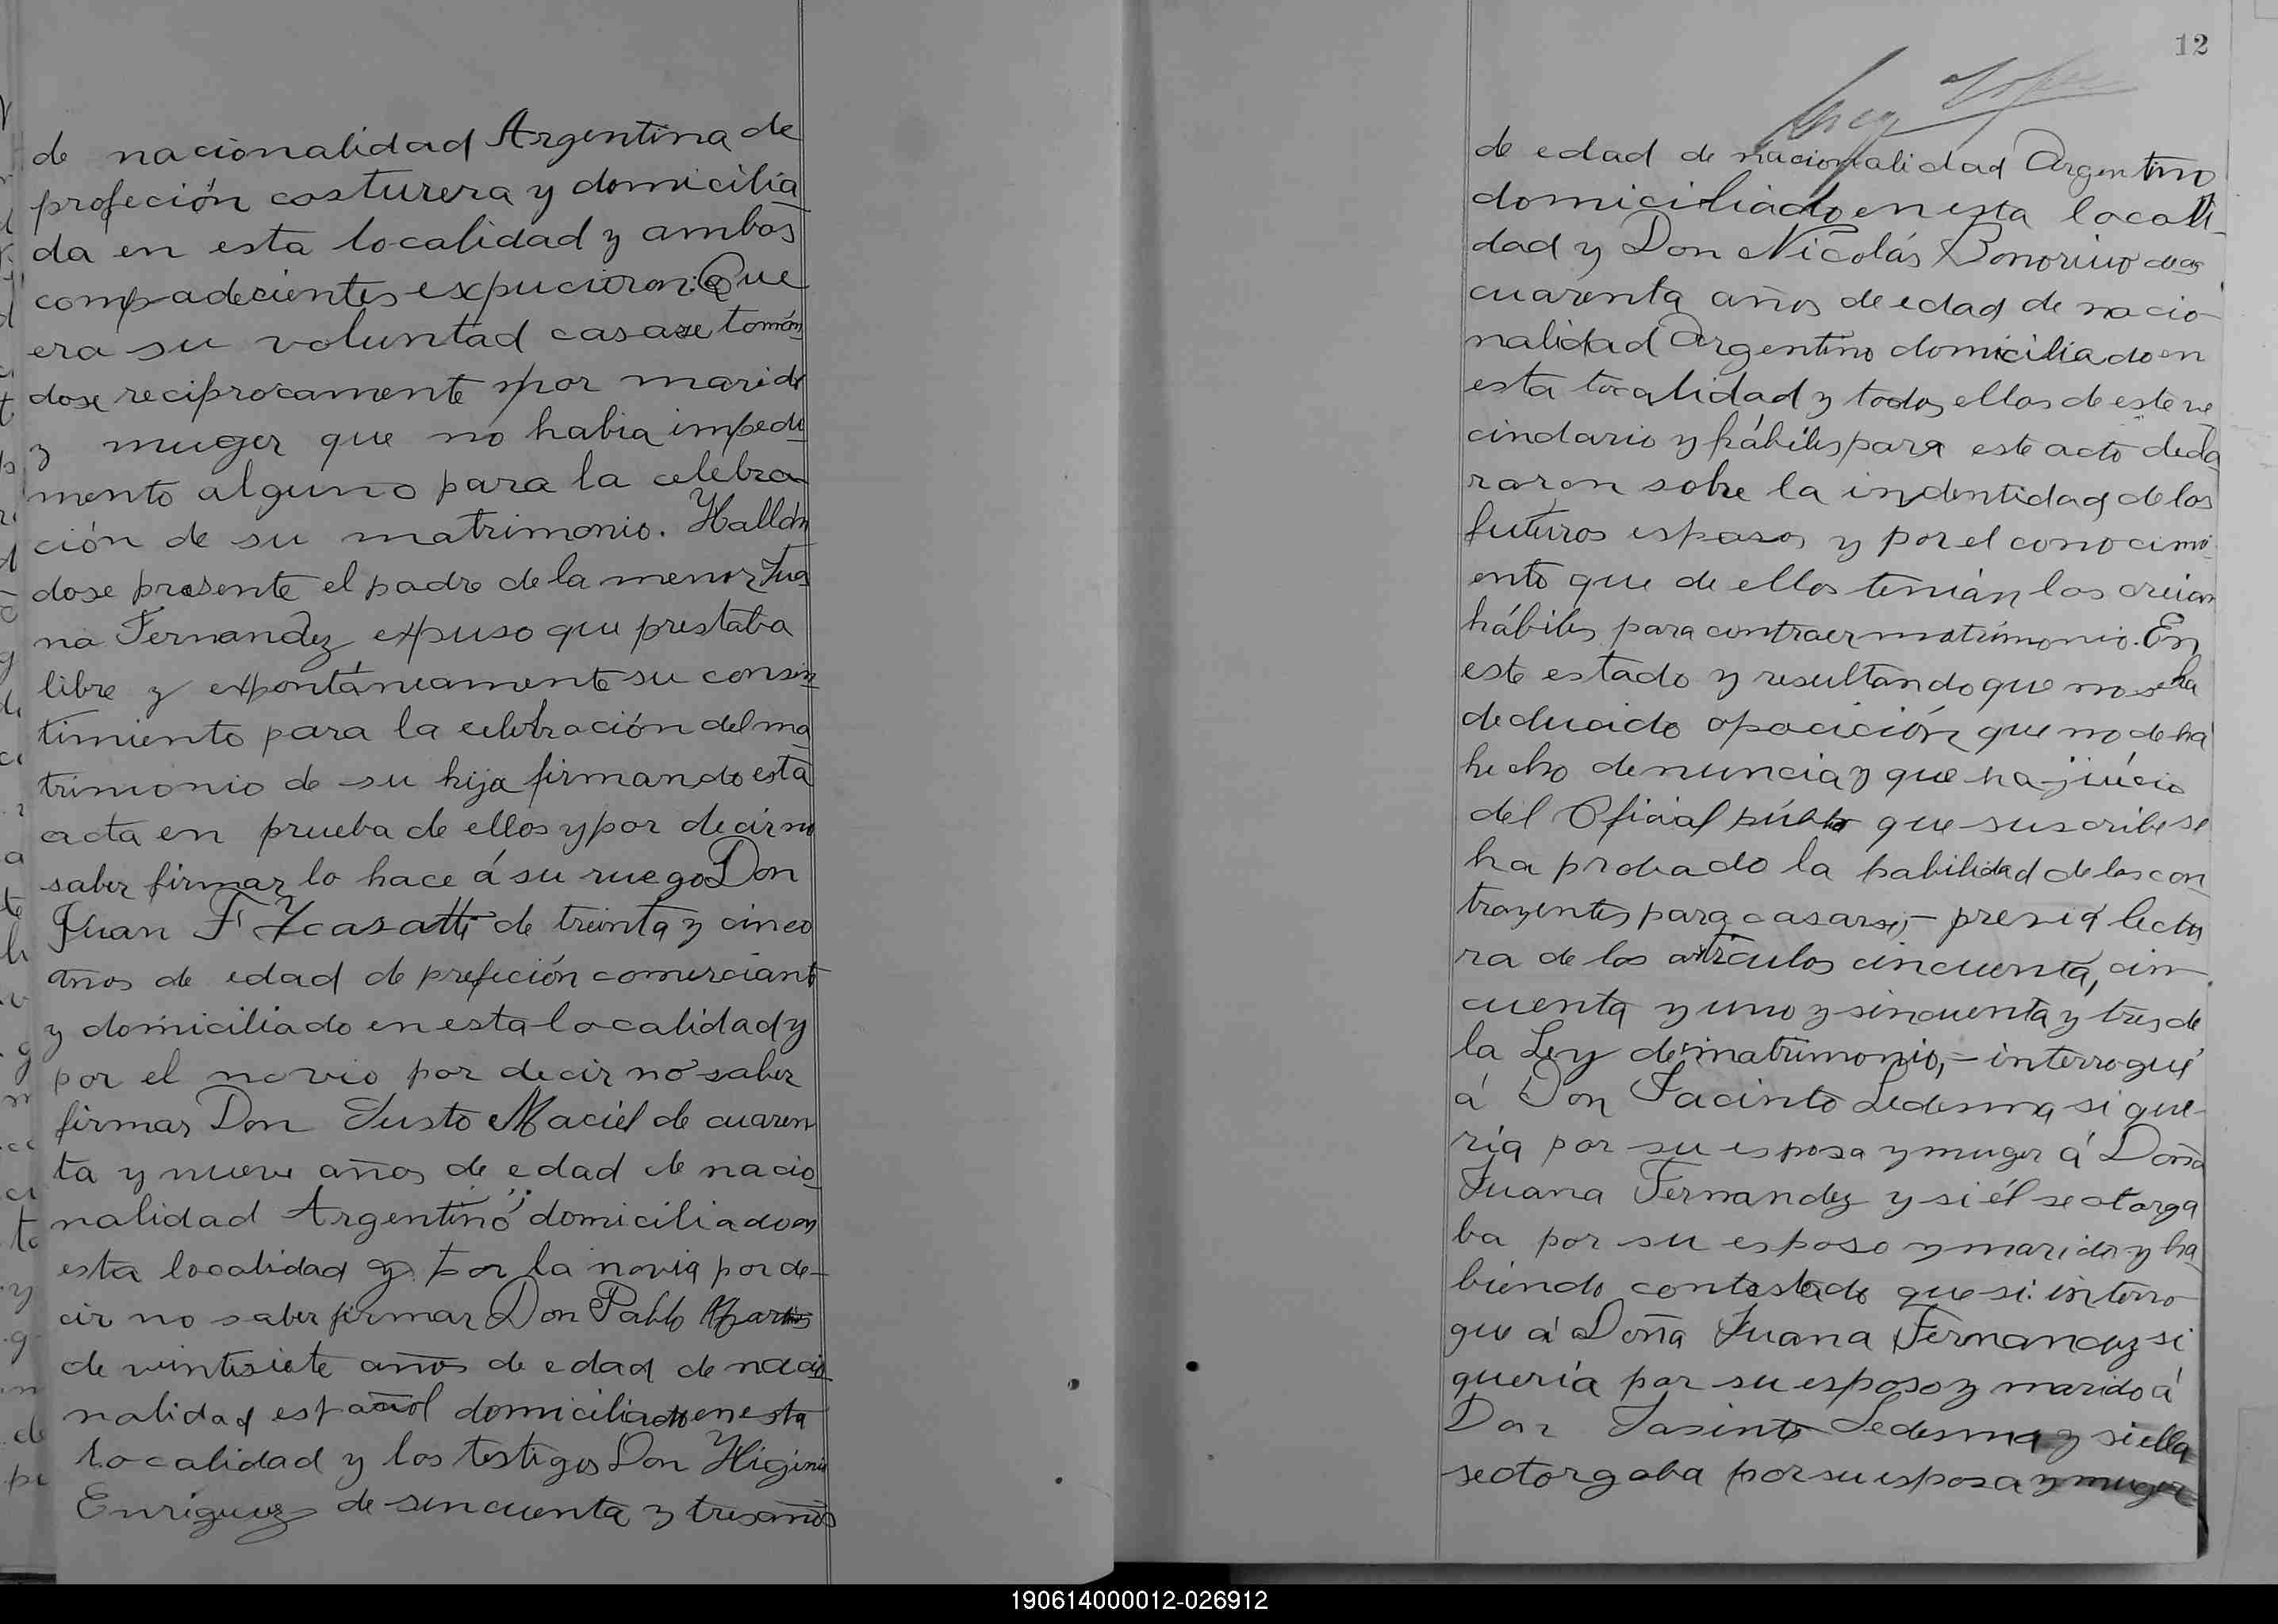 de nacionalidad Argentina de
profeción costurera y domicilia
da en esta localidad y ambos
compadecientes expucieron: Que
era su voluntad casase tomán
dose reciprocamente por marido
y muger que no habia impedi
mento alguno para la celebra
ción de su matrimonio. Hallán
dose presente el padre de la menor Jua
na Fernandez expuso que prestaba
libre y expontáneamente su consin
timiento para la celebración del ma
trimonio de su hija firmando esta
acta en prueba de ellos y por decir no
saber firmar lo hace á su ruego Don
Juan F Ycasatti de treinta y cinco
años de edad de profeción comerciante
y domiciliado en esta localidad y
por el novio por decir no saber
firmar Don Justo Maciel de cuaren
ta y nueve años de edad de nacio
nalidad Argentino domiciliado en
esta localidad y por la novia por de-
cir no saber firmar Don Pablo
de vintisiete años de edad de nacio
nalidad español domiciliado en esta
localidad y los testigos Don Higinio
Enriguez de sincuenta y tres años
12
de edad de nacionalidad Argentino
domiciliado en esta locali-
dad y Don Nicolás Bonorino de
cuarenta años de edad de nacio
nalidad Argentino domiciliado en
esta localidad y todos ellos de este ve
cindario y hábiles para este acto decla
raron sobre la indentidad de los
futuros esposos y por el conocimi
ento que de ellos tenian los creian
hábiles para contraer matrimonio. En
este estado y resultando que no se ha
deducido opocición que no de ha
hecho denuncia y que ha juicio
del Oficial público que suscribe se
ha probado la habilidad de los con
trayentes para casarse, - previa lectu
ra de los artículos cincuenta, cin
cuenta y uno y sincuenta y tres de
la Ley de matrimonio, - interrogué
á Don Jacinto Ledesma si que-
ria por su esposa y muger á Doña
Juana Fernandez y si él se otorga
ba por su esposo y marido y ha
biendo contestado que si interro
gue á Doña Juana Fernandez si
quería por su esposo y marido á
Don Jasinto Ledesma y si ella
se otorgaba por su esposa y muger
190614000012-026912